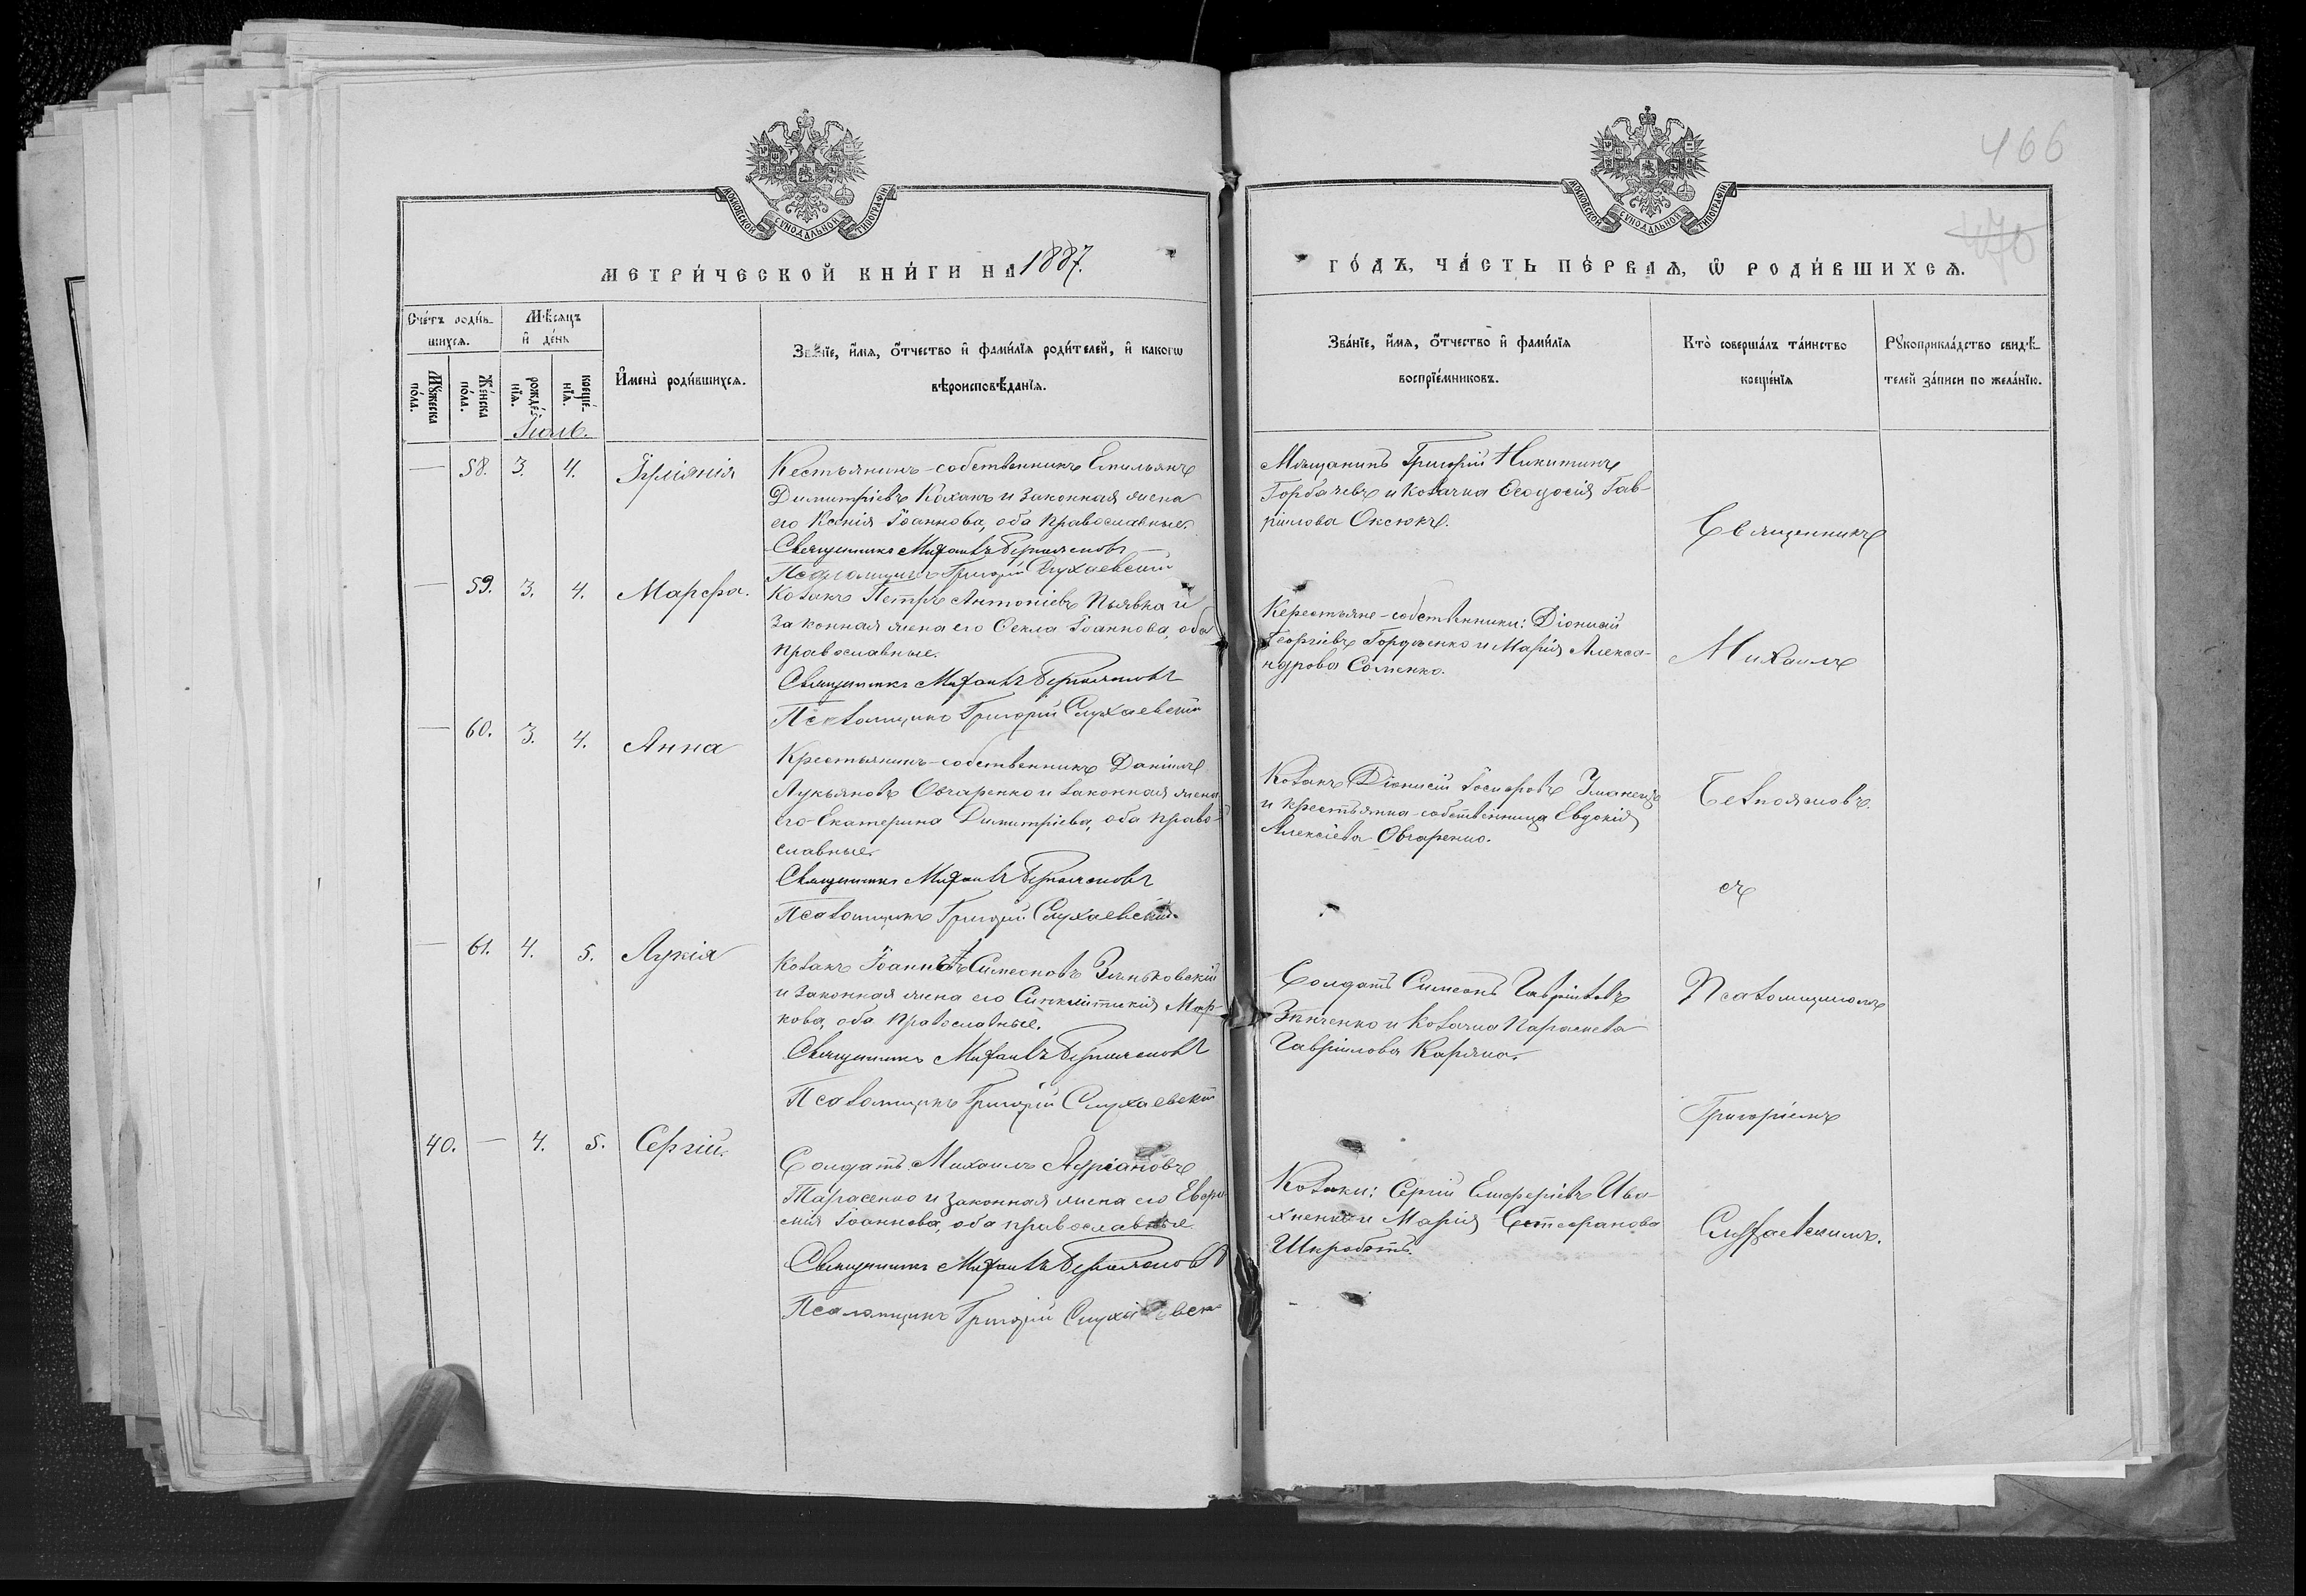 466
470
МОСКОВСКОЙ СѴНОДАЛЬНОЙ ТИПОГРАФІИ
МОСКОВСКОЙ СѴНОДАЛЬНОЙ ТИПОГРАФІИ
МЕТРИ́ЧЕСКОЙ КНИ́ГИ НА 1887.
ГО́ДЪ, ЧА́СТЬ ПЕ́РВАѦ, Ѡ РОДИ́ВШИХСѦ.
Сче́тъ роди́в-
шихсѧ.
Мꙋ́жеска по́ла.
Же́нска по́ла.
Мѣ́сѧцъ
и де́нь
рожде́-нїѧ.
креще́-нїѧ.
Имена̀ роди́вшихсѧ.
Зва́нїе, и́мѧ, о́тчество и фами́лїѧ роди́телей, и како́гѡ
вѣроисповѣ́данїѧ.
Зва́нїе, и́мѧ, о́тчество и фами́лїѧ
воспрїе́мниковъ.
Кто̀ соверша́лъ та́инство
креще́нїѧ
Рꙋкоприкла́дство свидѣ́-
телей за́писи по жела́нїю.
Іюль.
— 58. 3. 4. Іуліанія
Кестьянинъ-собственникъ Емильянъ
Димитріевъ Коханъ и законная жена
его Ксенія Іоаннова, оба православные.
Священникъ Михаилъ
Псаломщикъ Григорій Слухаевскій
Мѣщанинъ Григорій Никитинъ
Горбачевъ и козачка Ѳеодосія Гав-
ріилова Оксюкъ.
— 59. 3. 4. Марѳа.
Козакъ Петръ Антоніевъ Пьявка и
законная жена его Ѳекла Іоаннова, оба
православные.
Священникъ Михаилъ
Псаломщикъ Григорій Слухаевскій
Керестьяне-собственники: Діонисій
Георгіевъ Гордіенко и Марія Алекса-
ндрова Соменко.
— 60. 3. 4. Анна
Крестьянинъ-собственникъ Даніилъ
Лукьяновъ Овчаренко и законная жена
его Екатерина Димитріева, оба право-
славные.
Священникъ Михаилъ
Псаломщикъ Григорій Слухаевскій
Козакъ Діонисій
и крестьянка-собственница Евдокія
Алексіева Овчаренко.
— 61. 4. 5. Лукія
Козакъ Іоаннъ Симеоновъ Зиньковскій
и законная жена его Синклитикія Мар-
кова, оба православные.
Священникъ Михаилъ
Псаломщикъ Григорій Слухаевскій
Солдатъ Симеонъ Гавріиловъ
Зинченко и козачка Параскева
Гавріилова
40. — 4. 5. Сергій.
Солдатъ Михаилъ Адріановъ
Тарасенко и законная жена его Евфи-
мія Іоаннова, оба православные.
Священникъ Михаилъ
Псаломщикъ Григорій Слухаевск
Козаки: Сергій Елеѳеріевъ Ива-
хненко и Марія Стефанова
Шкроботъ.
Священникъ
Михаилъ
съ
Псаломщикомъ
Григоріемъ
Слухаевскимъ.